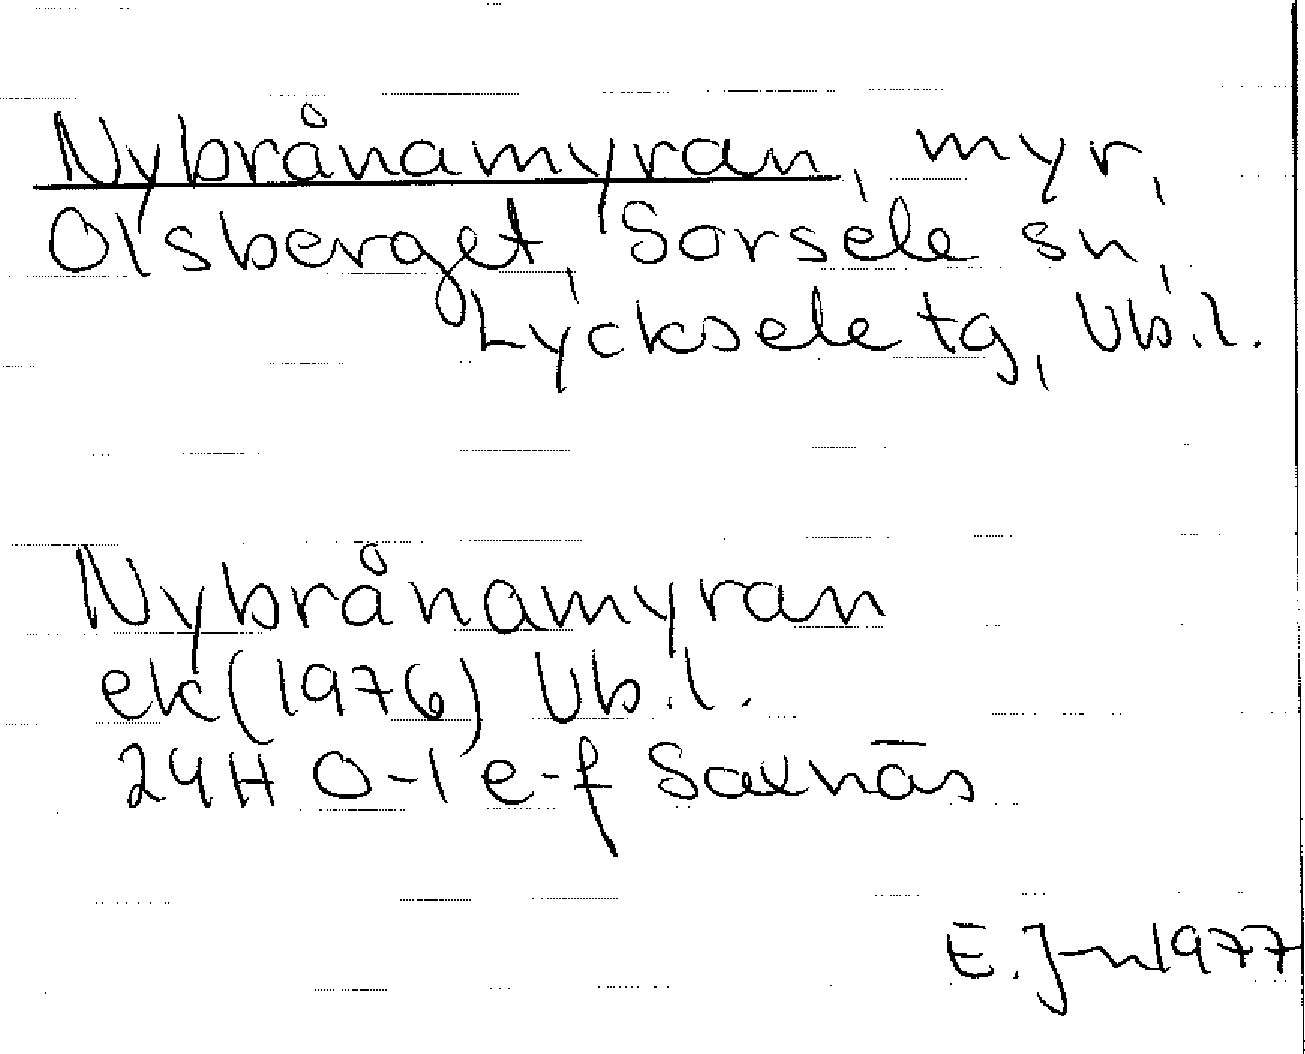 Nybrånamyran, myr,
Olsberget, Sorsele sn,
Lycksele tg, Vb.l.
Nybrånamyran
ek (1976) Vb.l.
24H 0-1 e-f Saxnäs
E. J-n 1977